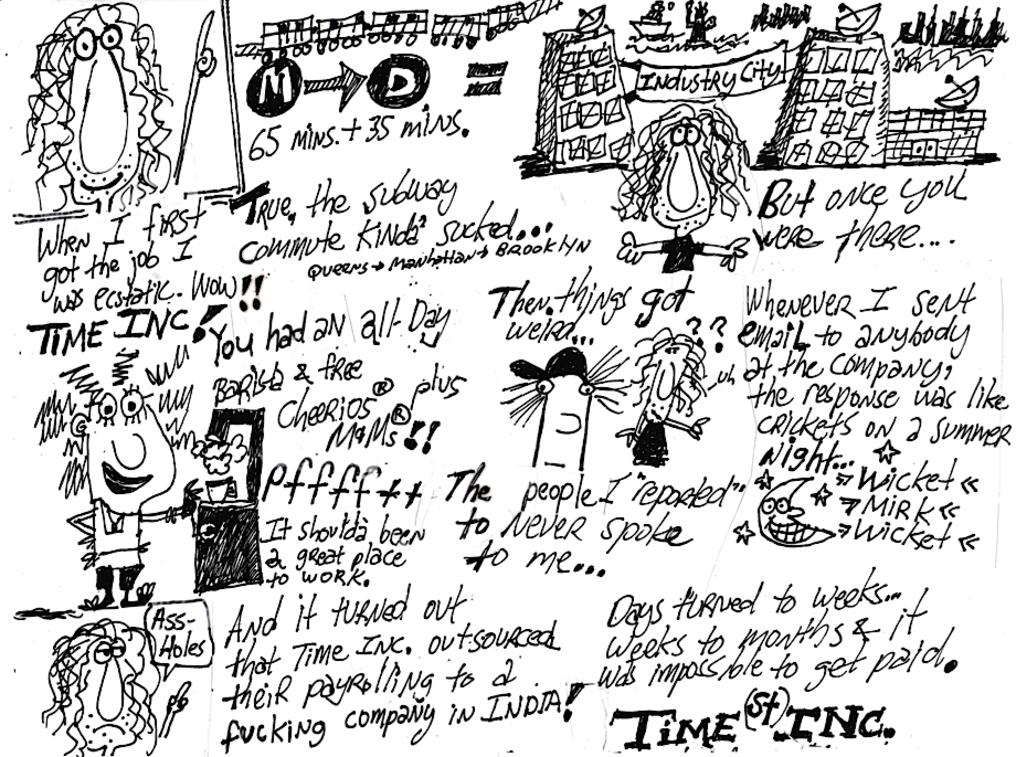 When I first
got the job I
was ecstatic. Wow!!
TIME INC!
M → D =
65 MINS. + 35 MINS.
TRUE, the subway
commute kinda sucked...
QUEENS → MANHATTAN → BROOKLYN
INDUSTRY CITY
But once you
were there....
You had an all-Day
Barista & free
Cheerios® plus
M&Ms®!!
Pfffff++
It shoulda been
a great place
to work.
Then things got
weird...
??
uh
The people I "reported"
to NEVER spoke
to me...
Whenever I sent
email to anybody
at the company,
the response was like
crickets on a summer
night...
Wicket «
Mirk «
Wicket «
Ass-
Holes
And it turned out
that Time Inc. outsourced
their payrolling to a
fucking company in INDIA!
Days turned to weeks...
weeks to months & it
was impossible to get paid.
TIME (St) INC.